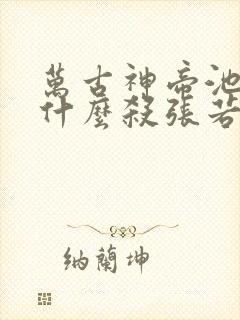 萬古神帝池
什麼殺張若
納蘭坤